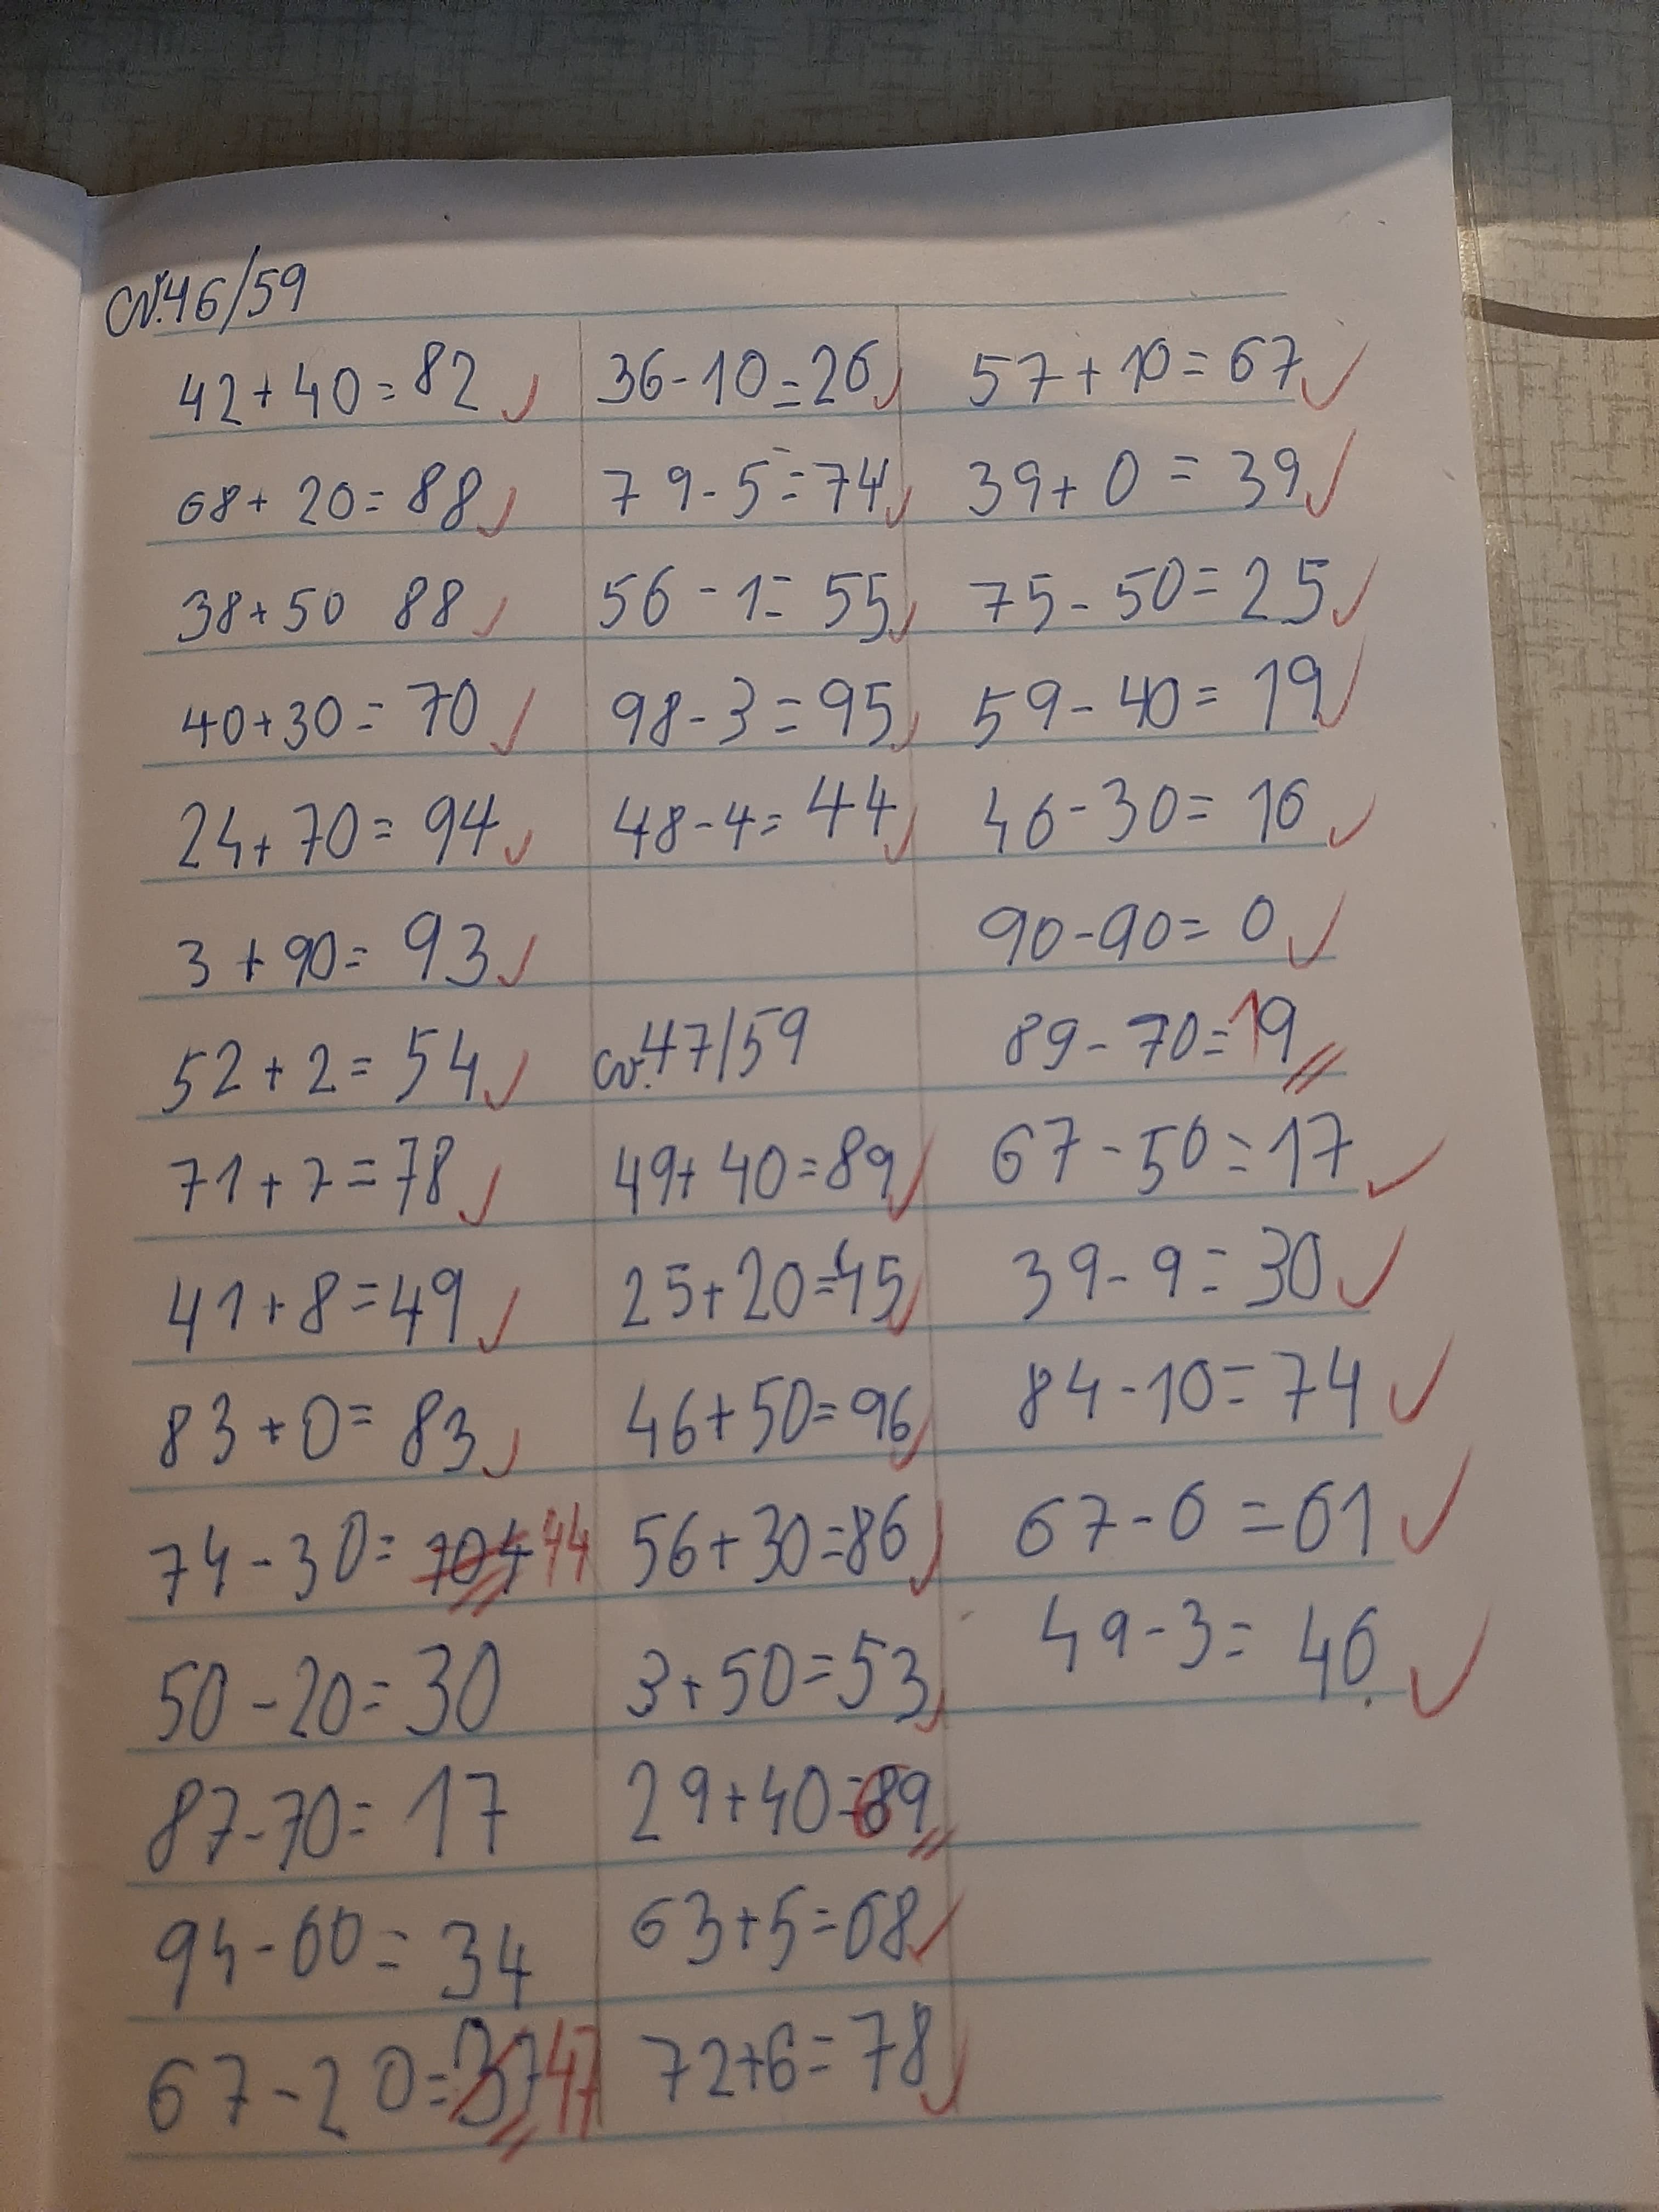 cv.46/59
42+40=82
68+20=88
38+50 88
40+30=70
24+70=94
3+90=93
52+2=54
71+7=78
41+8=49
83+0=83
74-30=704 44
50-20=30
87-70=17
94-60=34
67-20=37 47
36-10=26
79-5=74
56-1=55
98-3=95
48-4=44
cv.47/59
49+40=89
25+20=45
46+50=96
56+30=86
3+50=53
29+40=69
63+5=68
72+6=78
57+10=67
39+0=39
75-50=25
59-40=19
46-30=16
90-90=0
89-70=19
67-50=17
39-9=30
84-10=74
67-6=61
49-3=46